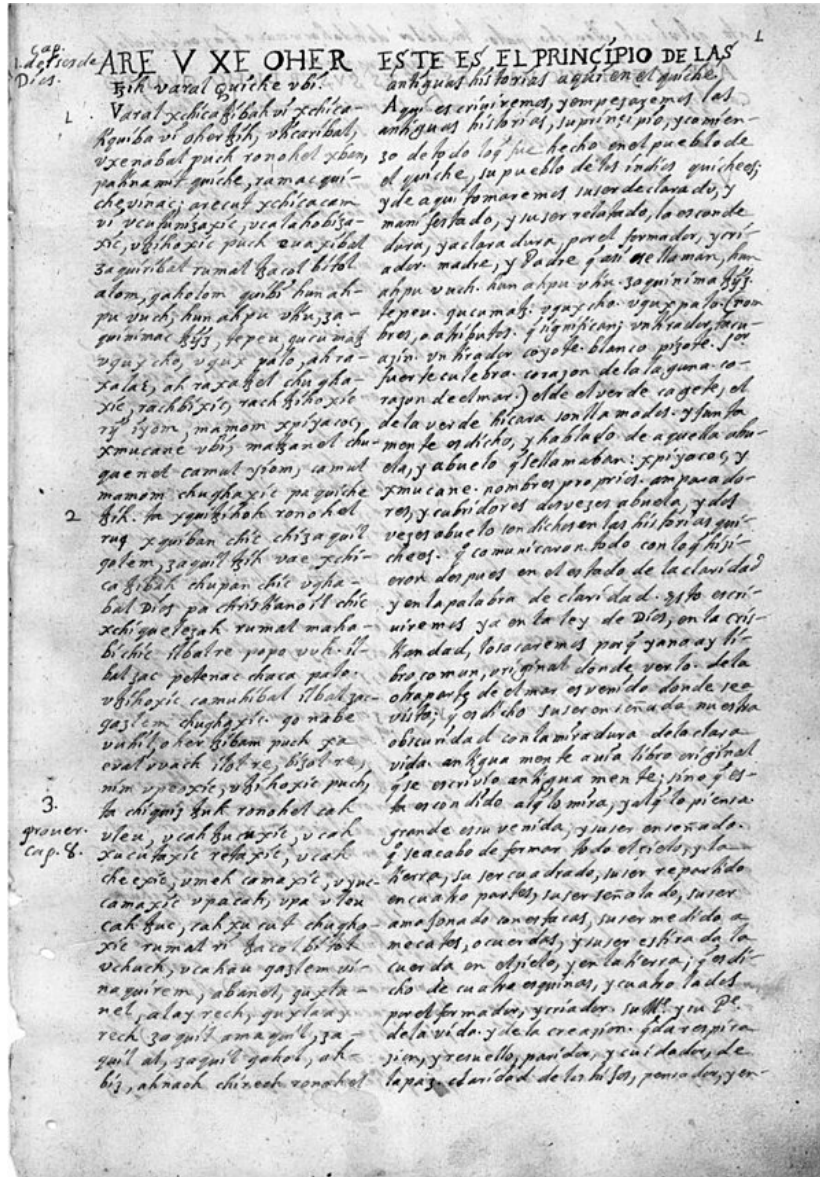 1
Cap.
1. del ser de
Dios.
ARE V XE OHER
ꜩih varal Quiche vbi.
1.
Varal xchicaꜩibah vi xchica-
tiquiba vi oher ꜩih, vticaribal,
vxenabal puch ronohel xban,
pa tinamit quiche, ramac qui-
che vinac; arecut xchicacam
vi vcutunizaxic, vcalahobiza-
xic, vꜩihoxic puch euaxibal
zaquiribal rumal ꜩacol bitol
alom, qaholom quibi hunah-
pu vuch, hunahpu vtiu, za-
quinimac ꜩyꜩ, tepeu, qucumaꜩ
vqux cho, vqux palo, ah ra-
xa lac, ah raxa ꜩel chugha-
xic, rachbixic, rachꜩihoxic
ri iyom, mamom xpiyacoc,
xmucane vbi, maꜩanel chu-
quenel camul iyom, camul
mamom chughaxic pa quiche
2
ꜩih. ta xquiꜩihoh ronohel
ruq xquiban chic chi zaquil
qolem, zaquil ꜩih vae xchi-
caꜩibah chupan chic vgha-
bal Dios pa christianoil chic
xchiquelezah rumal maha-
bi chic ilbal re popo vuh. il-
bal zac petenac chaca palo.
vꜩihoxic camuhibal ilbal zac
qazlem chughaxic. qo nabe
vuhil, oher ꜩibam puch xa
eval vvach ilol re, bizol re,
nim vpeoxic, vꜩihoxic puch,
3.
ta chiquiz ꜩuk ronohel cah
prover.
cap. 8.
vleu, vcah ꜩucuxic, vcah
xucutaxic retaxic, vcah
cheexic, vmeh camaxic, vyuc-
camaxic vpa cah, vpa vleu
cah ꜩuc, cah xucut chugha-
xic rumal ri ꜩacol bitol
vchuch, vcahau qazlem vi-
naquirem, abanel, quxla-
nel, alay rech, quxlaay
rech zaquil amaquil, za-
quil al, zaquil qahol, ah-
biz, ahnaoh chirech ronohel
ESTE ES EL PRINCIPIO DE LAS
antiguas historias aqui en el quiche.
Aqui escriviremos, y empesaremos las
antiguas historias, su prinsipio, y comien-
zo de todo lo q̃ fue hecho en el pueblo de
el quiche, su pueblo de los indios quichees;
y de aqui tomaremos su ser declarado, y
manifestado, y su ser relatado, la esconde
dura, y aclaradura, por el formador, y cri-
ador. madre, y Padre q̃ asi se llaman, hun
ahpu vuch. hun ahpu vtiu. zaquinima ꜩyꜩ.
tepeu. qucumaꜩ. vqux cho. vqux palo. (nom
bres, o atributos. q̃ significan; vn tirador, tacu-
azin. vn tirador coyote. blanco pizote. Sor
fuerte culebra. corazon de la laguna. co-
razon de el mar.) el de el verde cagete, el
de la verde hicara son llamados. y junta
mente es dicho, y hablado de aquella abu-
ela, y abuelo q̃ se llamaban: xpiyacoc, y
xmucane. nombres proprios. amparado-
res, y cubridores dos vezes abuela, y dos
vezes abuelo son dichos en las historias qui-
chees. q̃ comunicaron todo con lo q̃ hizi-
eron despues en el estado de la claridad
y en la palabra de claridad. esto escri-
viremos ya en la ley de Dios, en la cris-
tiandad, lo sacaremos porq̃ ya no ay li-
bro comun, original donde verlo. de la
otra parte de el mar es venido donde sea
visto; y es dicho su ser enseñada nuestra
obscuridad con la miradura de la clara
vida. antiguamente avia libro original
q̃ se escrivio antiguamente; sino q̃ es-
ta escondido al q̃ lo mira, y al q̃ lo piensa.
grande es su venida, y su ser enseñado.
q̃ se acabo de formar todo el cielo, y la
tierra, su ser cuadrado, su ser repartido
en cuatro partes, su ser señalado, su ser
amojonado con estacas, su ser medido a
mecates, o cuerdas, y su ser estirada la
cuerda en el sielo, y en la tierra; q̃ es di-
cho de cuatro esquinas, y cuatro lados
por el formador, y criador su Mᵉ. y su Pᵉ.
de la vida. y de la creazion. q̃ da respira
zion, y resuello, paridor, y cuidador, de
la paz. claridad de los hijos, pensador, y en-